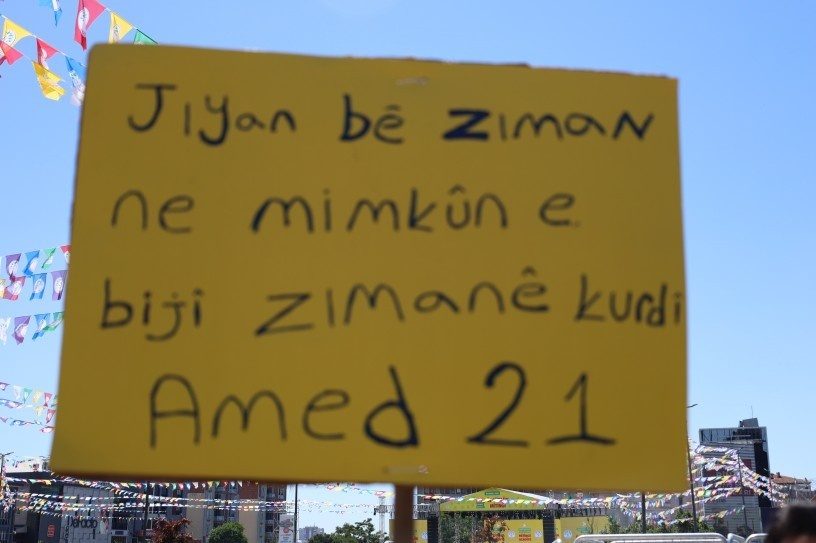 Jiyan bê ziman
ne mimkûn e.
bijî zimanê kurdi
Amed 21